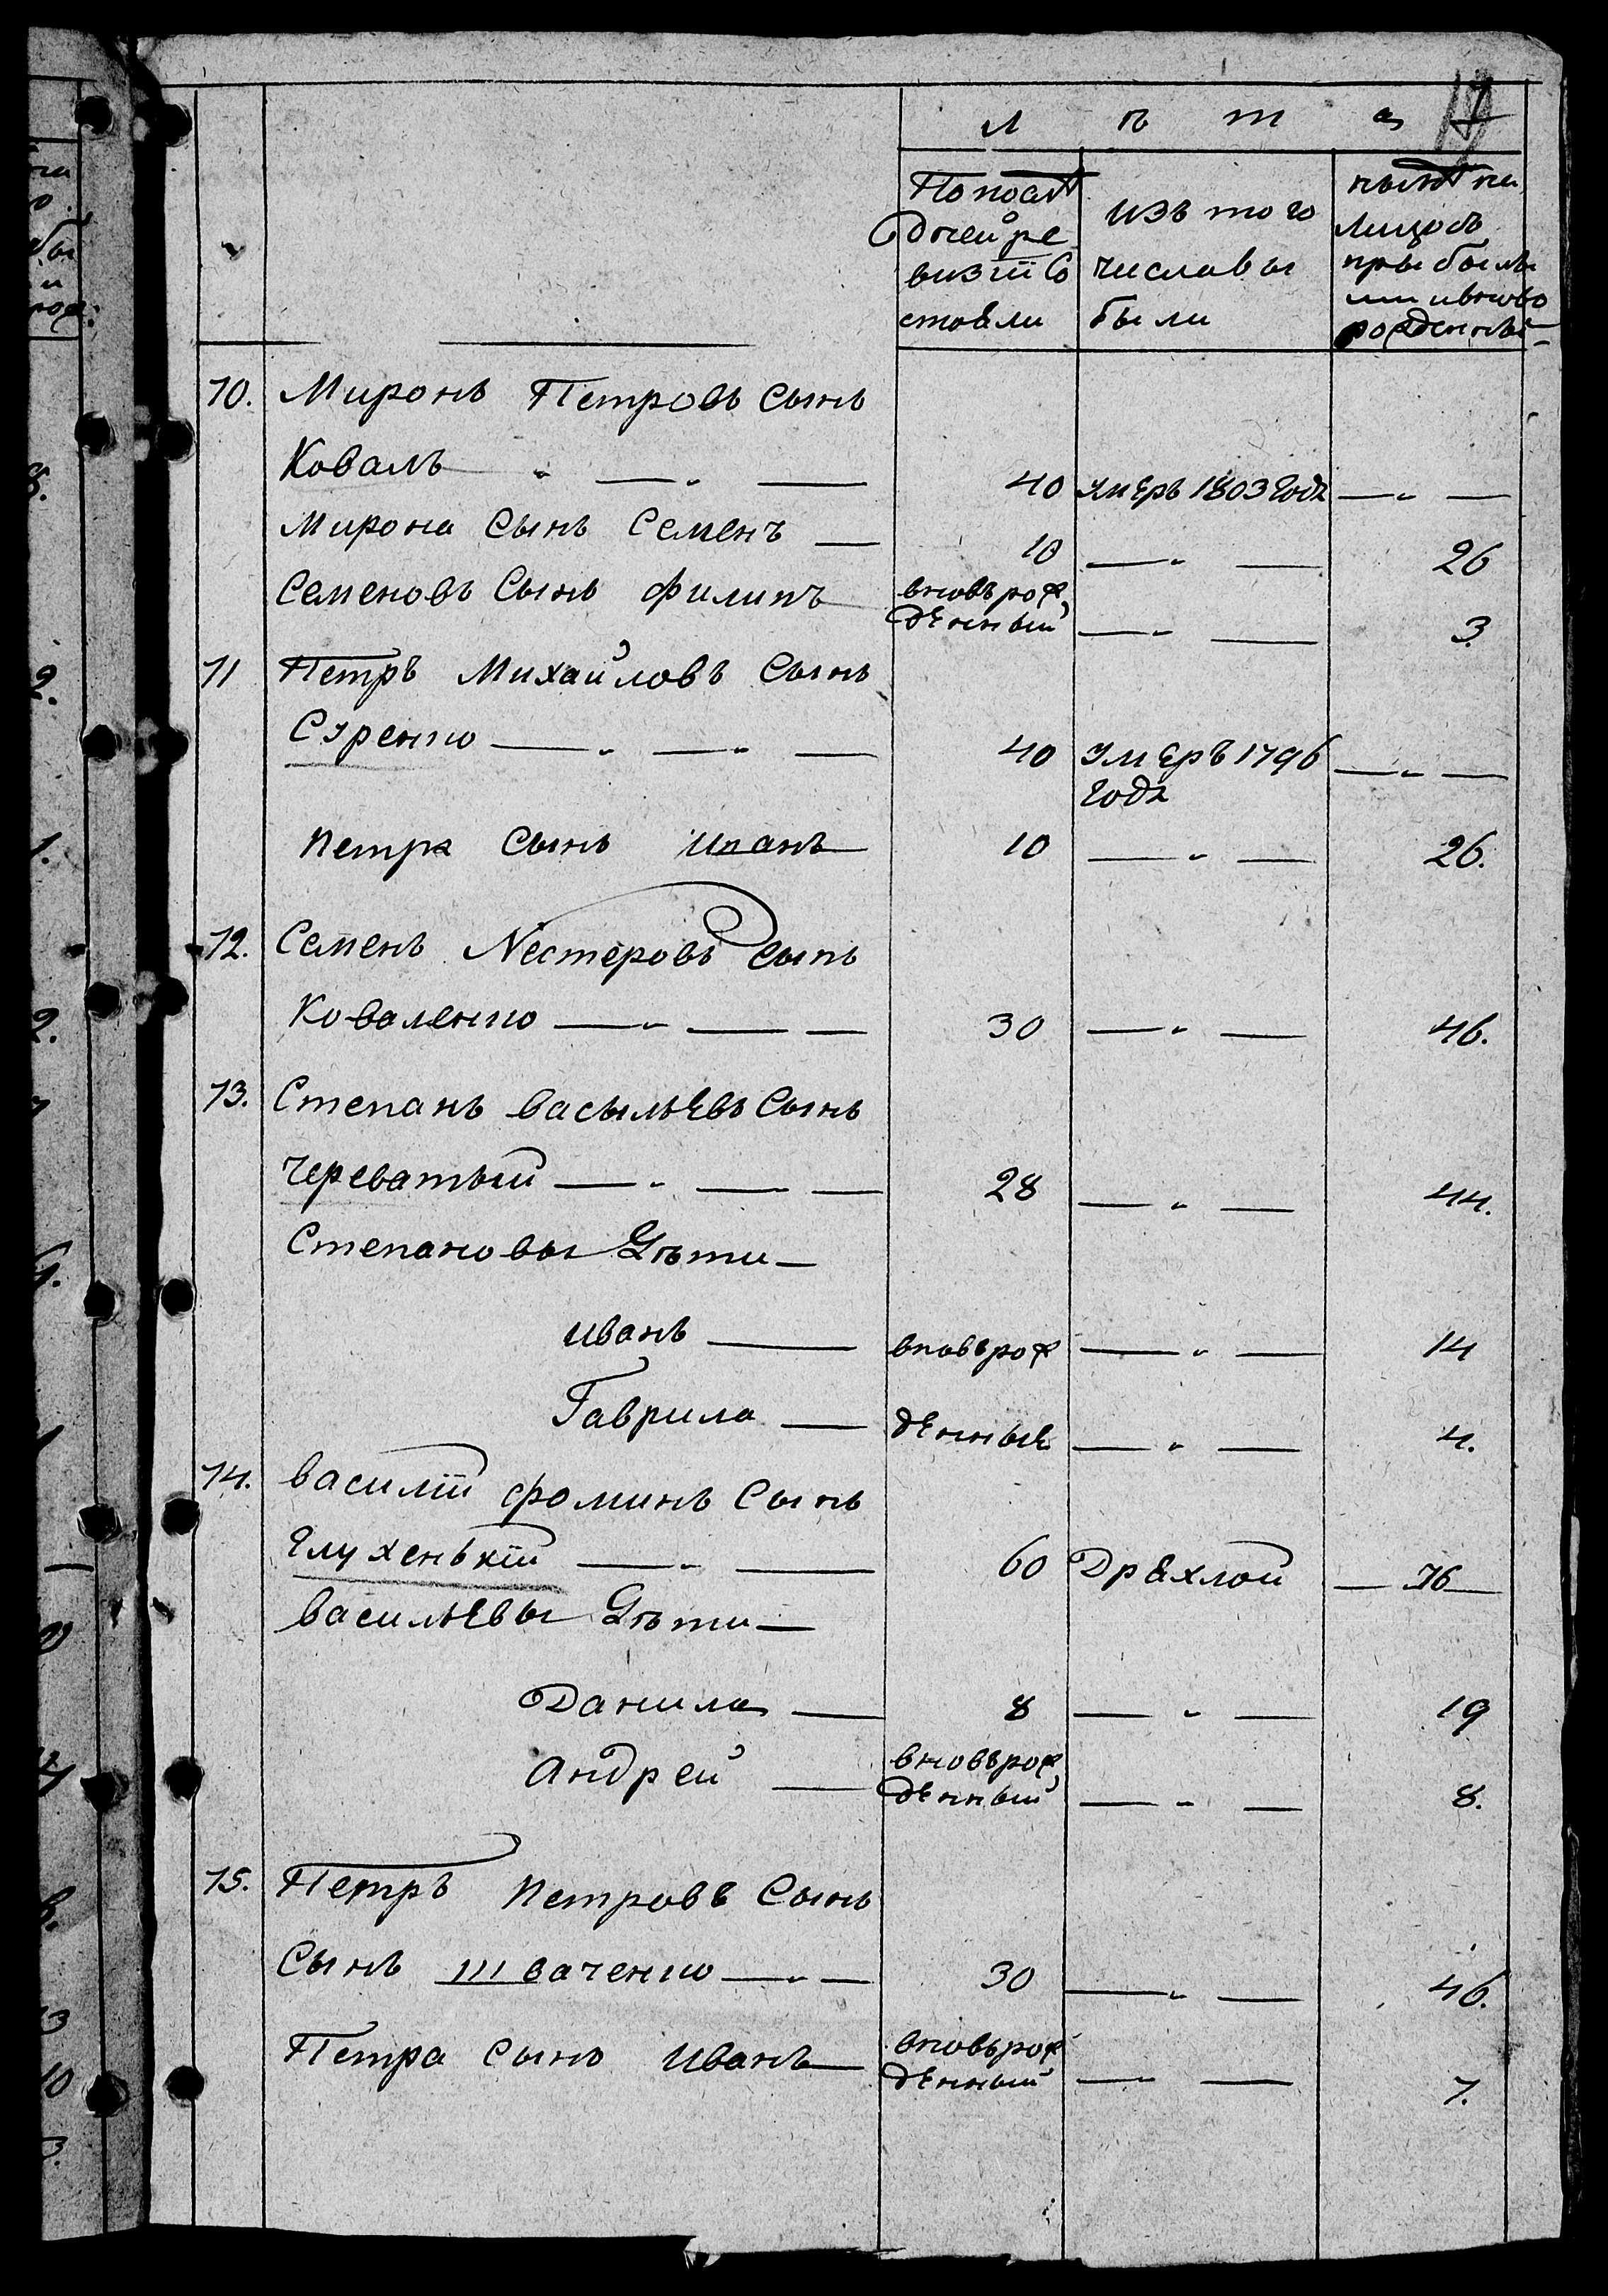 лѣта
По послѣ
дней ре
визіи Со
стояли
изъ того
числа вы
были
нынѣ на
лицо съ
прыбылы
ми и вново
рожденны
70. Миронъ Петровъ Сынъ
Коваль 40 умеръ 1803 года
Мирона Сынъ Семенъ 10 26
Семеновъ Сынъ Филипъ вновьрож
денный 3
71 Петръ Михайловъ Сынъ
Суренко 40 умеръ 1796
года
Петра Сынъ Иванъ 10 26.
72. Семенъ Nестеровъ Сынъ
Коваленко 30 46.
73. Степанъ Васыльевъ Сынъ
Череватый 28 44.
Степановы Дѣти
Иванъ вновьрож 14
Гаврила денные 4.
74. Василій Фоминъ Сынъ
Глухенькій 60 Дряхлой 76
Васильевы Дѣти
Данила 8 19
Андрей вновьрож
денный 8.
75. Петръ Петровъ Сынъ
Сынъ Шваченко 30 46.
Петра Сынъ Иванъ вновьрож
денный 7.